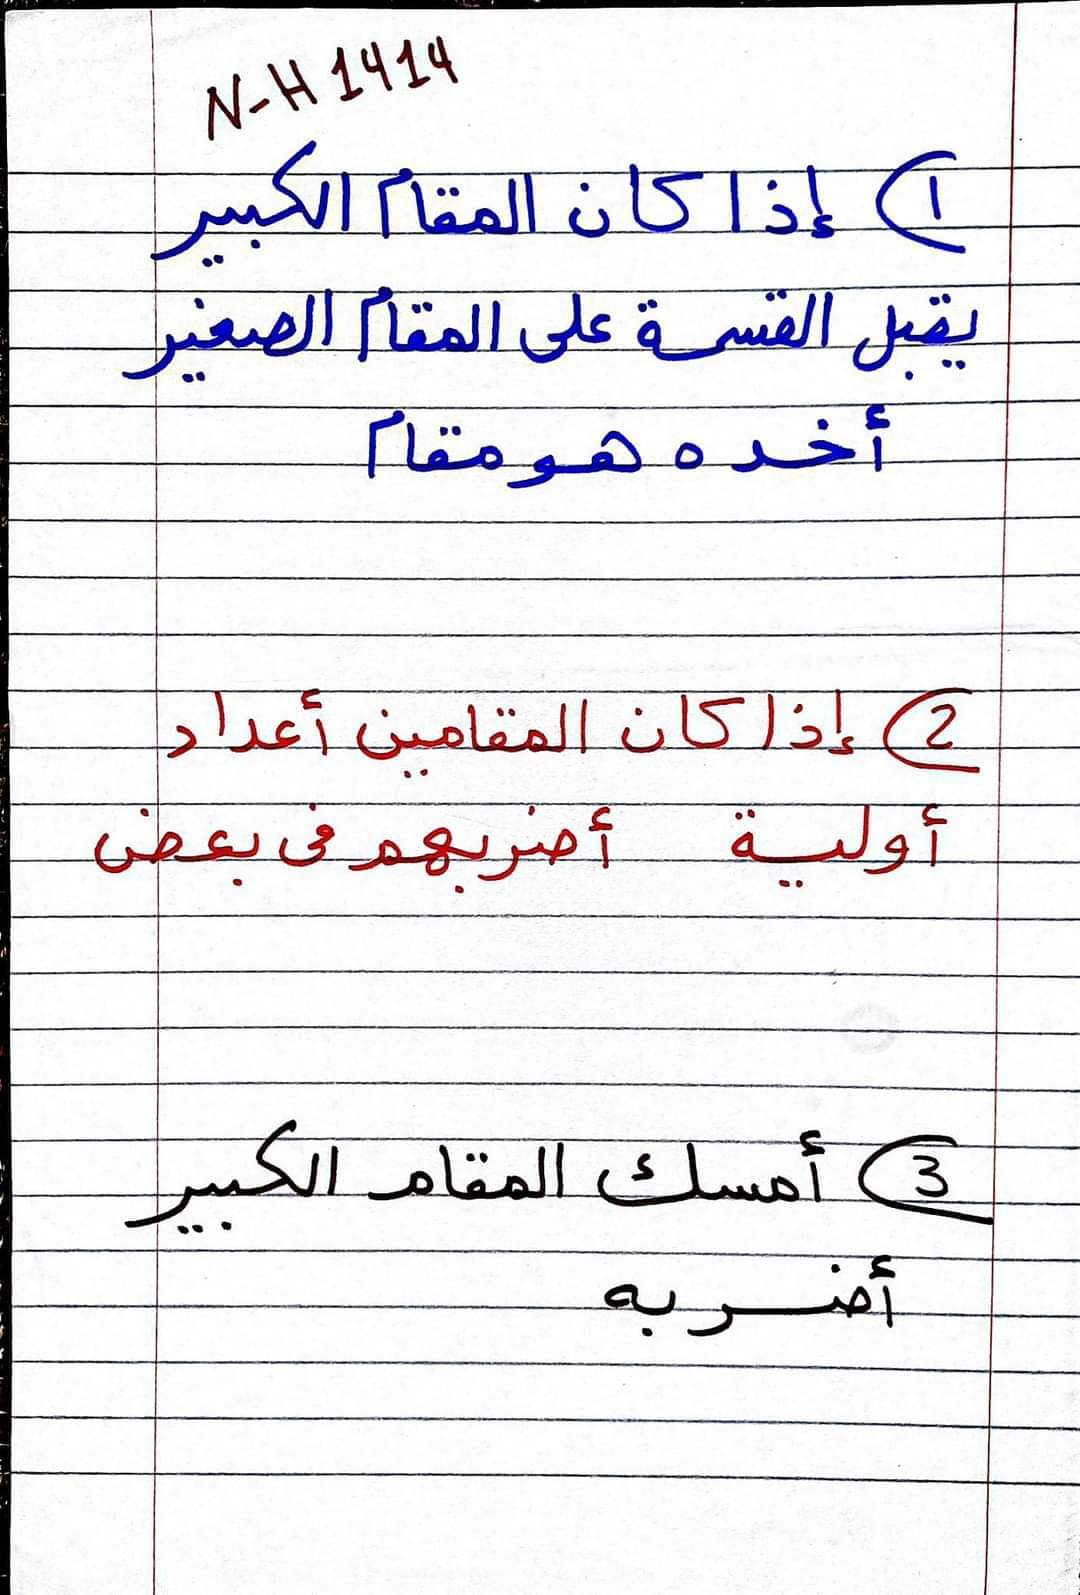 N-H 1414
1) إذا كان المقام الكبير
يقبل القسمة على المقام الصغير
أخده هو مقام
2) إذا كان المقامين أعداد
أولية أضربهم فى بعض
3) أمسك المقام الكبير
أضربه